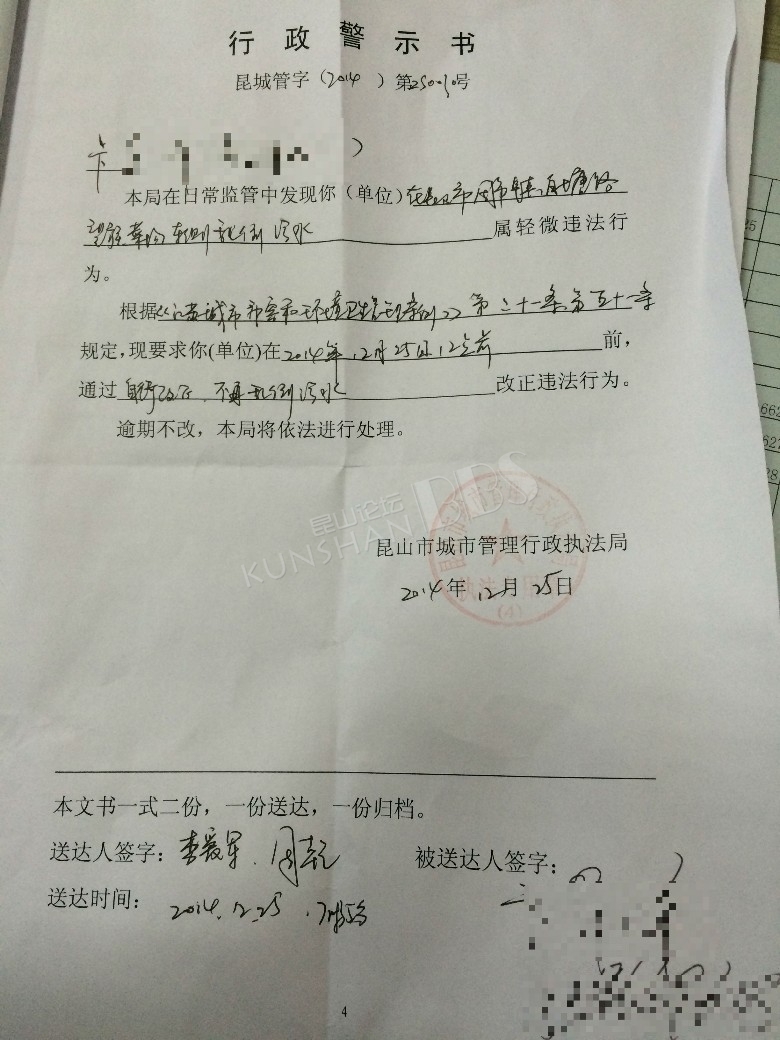 行政警示书
昆城管字(2014)第25003号
卡
本局在日常监管中发现你(单位)在昆山市周市镇
乱倒污水 属轻微违法行
为。
根据《江苏城市市容和环境卫生管理条例》第二十一条、第五十一条
规定,现要求你(单位)在2014年12月25日12点前 前,
通过自行改正、不再乱倒污水 改正违法行为。
逾期不改,本局将依法进行处理。
昆山论坛 BBS
KUNSHAN
昆山市城市管理行政执法局
2014年12月25日
(4)
本文书一式二份,一份送达,一份归档。
送达人签字:李爱军、周 被送达人签字:
送达时间: 2014.12.25
4